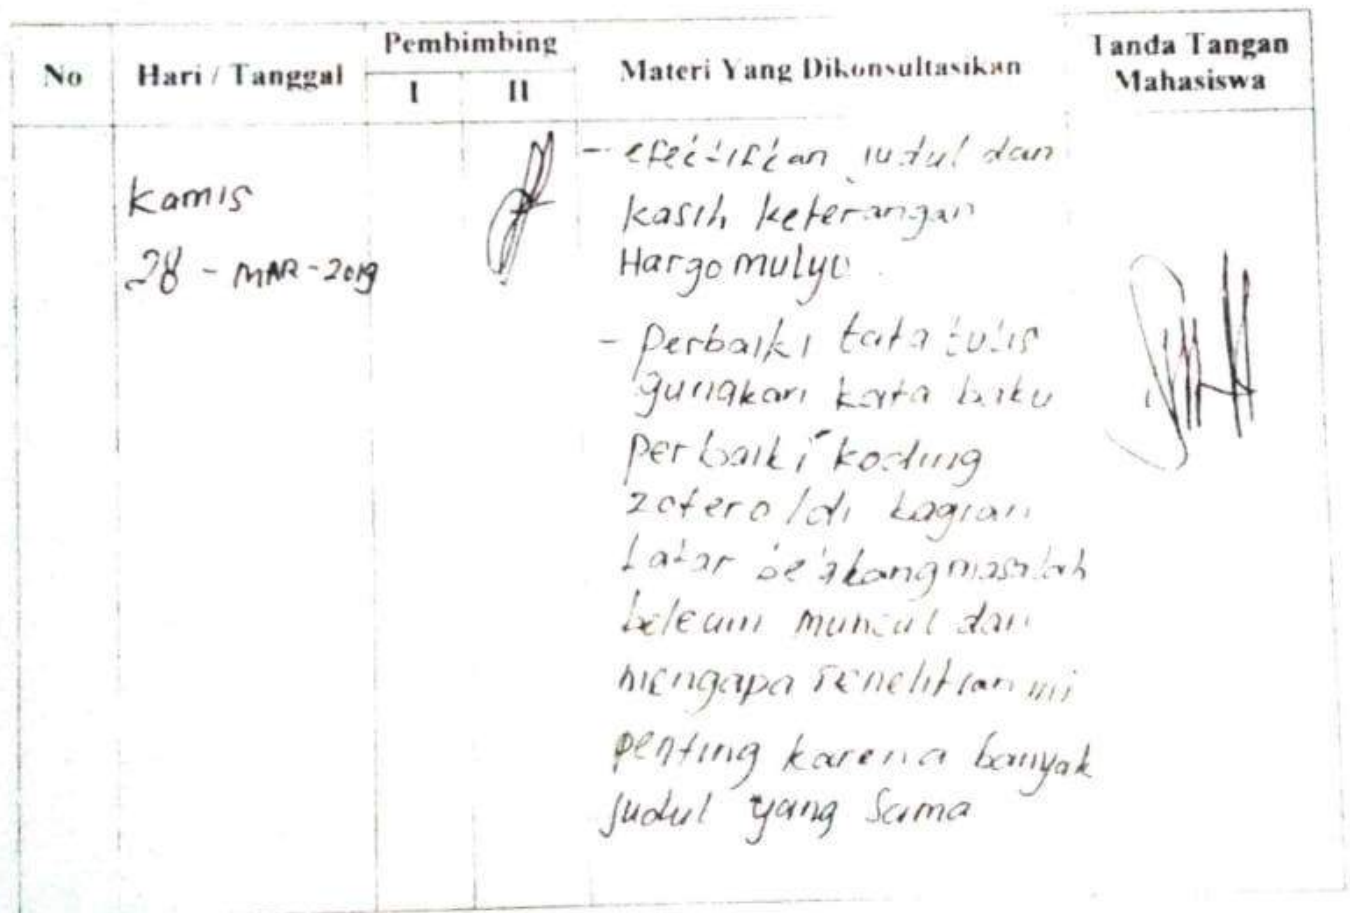 No Hari / Tanggal Pembimbing Materi Yang Dikonsultasikan Tanda Tangan Mahasiswa
I II
Kamis
28 - MAR - 2019
- efectifkan judul dan
kasih keterangan
Hargomulyo
- Perbaiki tata tulis
gunakan kata baku
perbaiki koding
zotero / di bagian
Latar belakang masalah
beleum muncul dan
mengapa Penelitian ini
penting karena banyak
judul yang Sama